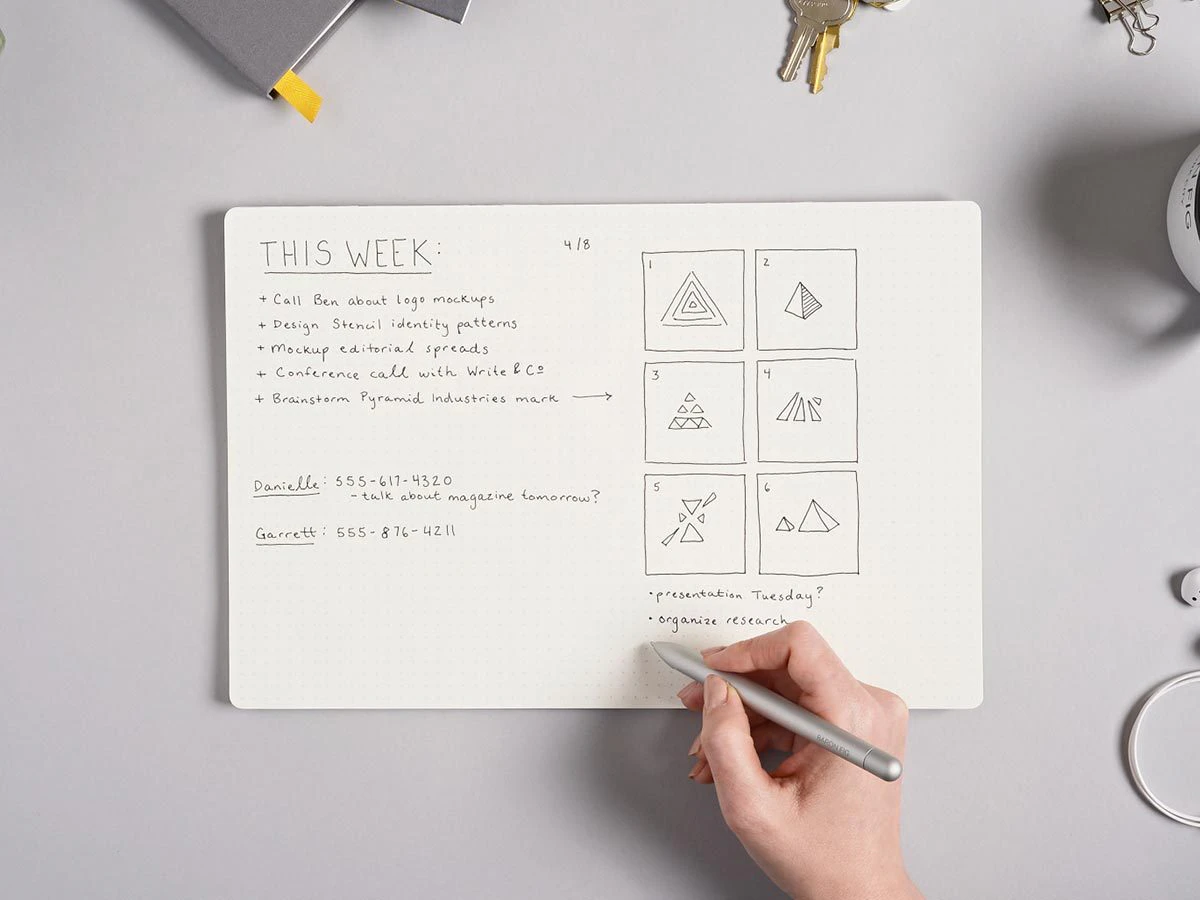 THIS WEEK:
4/8
+ Call Ben about logo mockups
+ Design Stencil identity patterns
+ Mockup editorial spreads
+ Conference call with Write & Co
+ Brainstorm Pyramid Industries mark →
Danielle: 555-617-4320
- talk about magazine tomorrow?
Garrett: 555-876-4211
1
2
3
4
5
6
• presentation Tuesday?
• organize research
BARON FIG
FIG